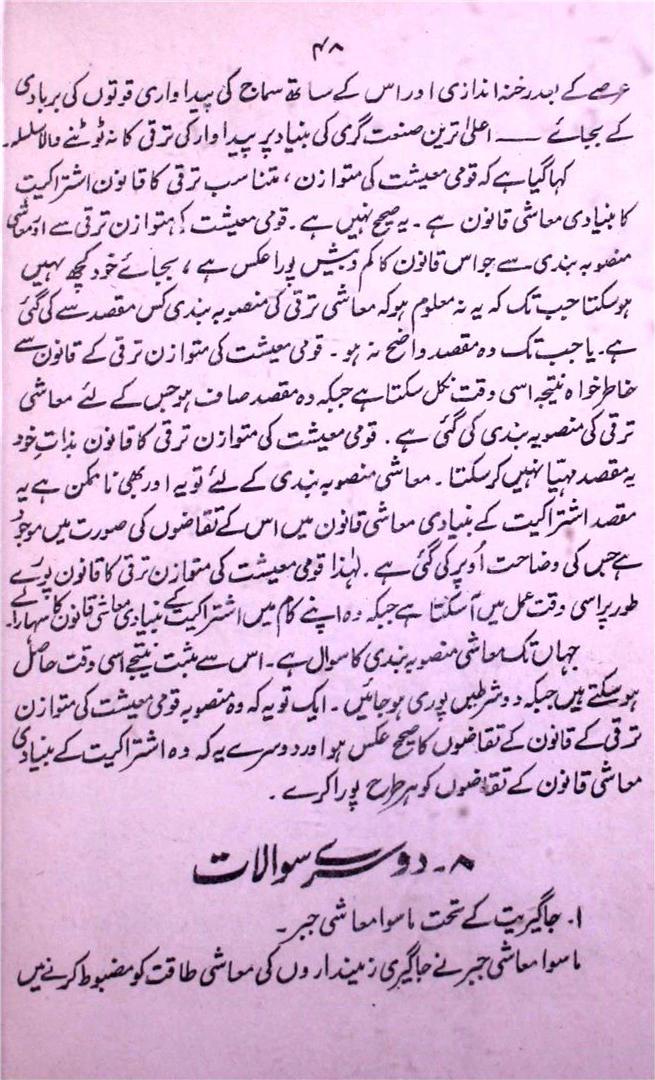 ۴۸
عرصے کے بعد رخنہ اندازی اور اس کے ساتھ سماج کی پیداواری قوتوں کی بربادی
کے بجائے ـــــ اعلیٰ ترین صنعت گری کی بنیاد پر پیداوار کی ترقی کا نہ ٹوٹنے والا سلسلہ۔
کہا گیا ہے کہ قومی معیشت کی متوازن، متناسب ترقی کا قانون اشتراکیت
کا بنیادی معاشی قانون ہے۔ یہ صحیح نہیں ہے۔ قومی معیشت کی متوازن ترقی سے اور معاشی
منصوبہ بندی سے جو اس قانون کا کم و بیش پورا عکس ہے، بجائے خود کچھ نہیں
ہو سکتا جب تک کہ یہ نہ معلوم ہو کہ معاشی ترقی کی منصوبہ بندی کس مقصد سے کی گئی
ہے۔ یا جب تک وہ مقصد واضح نہ ہو۔ قومی معیشت کی متوازن ترقی کے قانون سے
خاطر خواہ نتیجہ اسی وقت نکل سکتا ہے جبکہ وہ مقصد صاف ہو جس کے لئے معاشی
ترقی کی منصوبہ بندی کی گئی ہے۔ قومی معیشت کی متوازن ترقی کا قانون بذاتِ خود
یہ مقصد مہیّا نہیں کر سکتا۔ معاشی منصوبہ بندی کے لئے تو یہ اور بھی ناممکن ہے یہ
مقصد اشتراکیت کے بنیادی معاشی قانون میں اس کے تقاضوں کی صورت میں موجود
ہے جس کی وضاحت اُوپر کی گئی ہے۔ لہٰذا قومی معیشت کی متوازن ترقی کا قانون پورے
طور پر اسی وقت عمل میں آ سکتا ہے جبکہ وہ اپنے کام میں اشتراکیت کے بنیادی معاشی قانون کا سہارا لے۔
جہاں تک معاشی منصوبہ بندی کا سوال ہے۔ اس سے مثبت نتیجے اسی وقت حاصل
ہو سکتے ہیں جبکہ دو شرطیں پوری ہو جائیں۔ ایک تو یہ کہ وہ منصوبہ قومی معیشت کی متوازن
ترقی کے قانون کے تقاضوں کا صحیح عکس ہو اور دوسرے یہ کہ وہ اشتراکیت کے بنیادی
معاشی قانون کے تقاضوں کو ہر طرح پورا کرے۔
۸۔ دوسرے سوالات
۱۔ جاگیریت کے تحت ماسوا معاشی جبر۔
ماسوا معاشی جبر نے جاگیری زمینداروں کی معاشی طاقت کو مضبوط کرنے میں